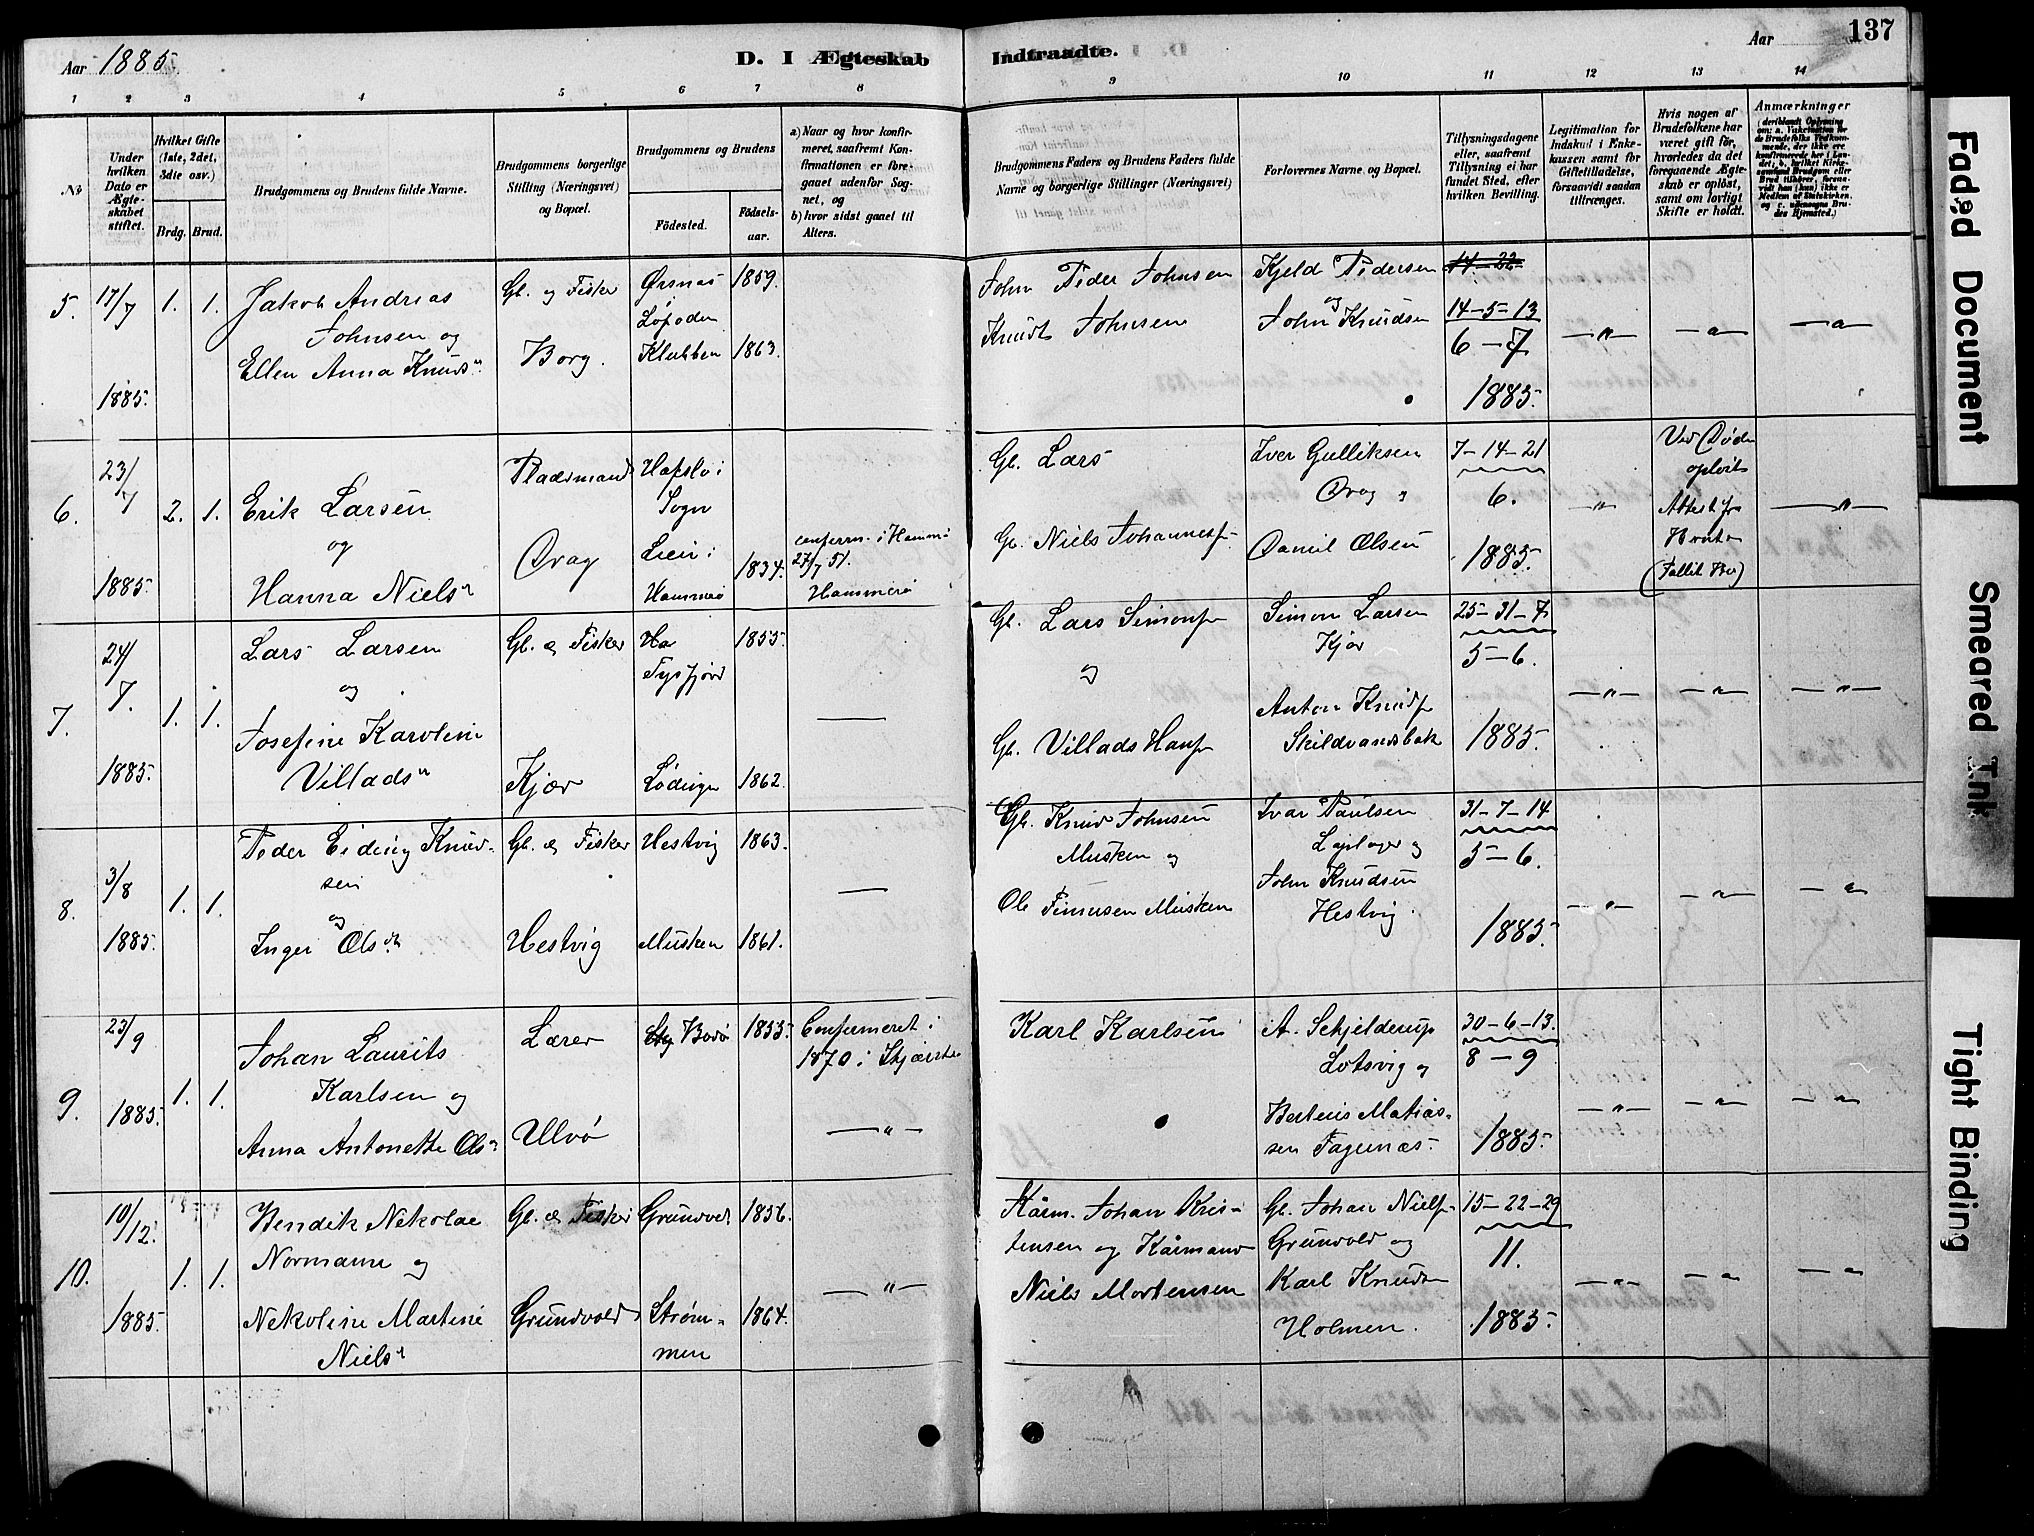 Aar 1885.
D. I Ægteskab Indtraadte.
Aar
137
1 2 3 4 5 6 7 8 9 10 11 12 13 14
No
Under hvilken Dato er Ægteskabet stiftet.
Hvilket Gifte (1ste, 2det, 3die osv.)
Brdg. Brud.
Brudgommens og Brudens fulde Navne.
Brudgommens borgerlige Stilling (Næringsvei) og Bopæl.
Brudgommens og Brudens
Fødested.
Fødselsaar.
a) Naar og hvor konfirmeret, saafremt Konfirmationen er foregaaet udenfor Sognet, og
b) hvor sidst gaaet til Alters.
Brudgommens Faders og Brudens Faders fulde Navne og borgerlige Stillinger (Næringsvei)
Forlovernes Navne og Bopæl.
Tillysningsdagene eller, saafremt Tillysning ei har fundet Sted, efter hvilken Bevilling.
Legitimation for Indskud i Enkekassen samt for Giftetilladelse, forsaavidt saadan tiltrænges.
Hvis nogen af Brudefolkene har været gift før, hvorledes da det foregaaende Ægteskab er opløst, samt om lovligt Skifte er holdt.
Anmærkninger
5. 17/7 1885. 1. 1.
Jakob Andreas
Johnsen og
Ellen Anna Knuds
Gb. og Fisker
Borg.
Ørsnes
Lofoden 1859.
Klubben 1863.
John Peder Johnsen
Knudt Johnsen
Kjeld Pedersen
og
John Knudsen
14-22
14-5-13
6-7
1885.
6. 23/7 1885. 2. 1.
Erik Larsen
og
Hanna Niels
Pladsmand
Drag
Hafslo i
Sogn
Lien i
Hammerø 1834.
conferm. i Hammerø
27/7 51.
Hammerø
Gb. Lars
Gb. Niels Johannes
Iver Gulliksen
Drag og
Daniel Olsen
7-14-21
6.
1885.
Ved Døden
opløst
Attest fra
7. 24/7. 1885. 1. 1.
Lars Larsen
og
Josefine Karoline
Villads
Gb. & Fisker
Kjær
Tysfjord 1855.
Lødingen 1862.
Gb. Lars Simons
og
Gb. Villads Hans
Simon Larsen
Kjør
Anton Knuds
Skildvandsbak
25-31-7
5-6.
1885.
8. 3/8 1885. 1. 1.
Peder Eiding Knudsen
og
Inger Ols
Gb. & Fisker
Hestvig
Hestvig 1863.
Musken 1861.
Gb. Knud Johnsen
Musken og
Ole Simensen Musken
Ivar Paulsen
og
John Knudsen
Hestvig.
31-7-14
5-6.
1885.
9. 23/9 1885. 1. 1.
Johan Laurits
Karlsen og
Anna Antonette Ols
Lærer
Ulvø
Bodø 1855.
Confermeret i
1870 i Skjærstad
Karl Karlsen
A. Schjelderup
Lotsvig og
Berteus Matiassen Fagernæs.
30-6-13.
8-9
1885.
10. 10/12. 1885. 1. 1.
Hendik Nekolae
Normann og
Nekoline Martine
Niels
Gb. & Fisker
Grundvold
Grundvold 1856.
Strømmen 1864.
Kårm. Johan Kristensen og Kårmand
Niels Mortensen
Gb. Johan Niels
Grundvold og
Karl Knudsen
Holmen.
15-22-29
11.
1885.
Faded Document
Smeared Ink
Tight Binding